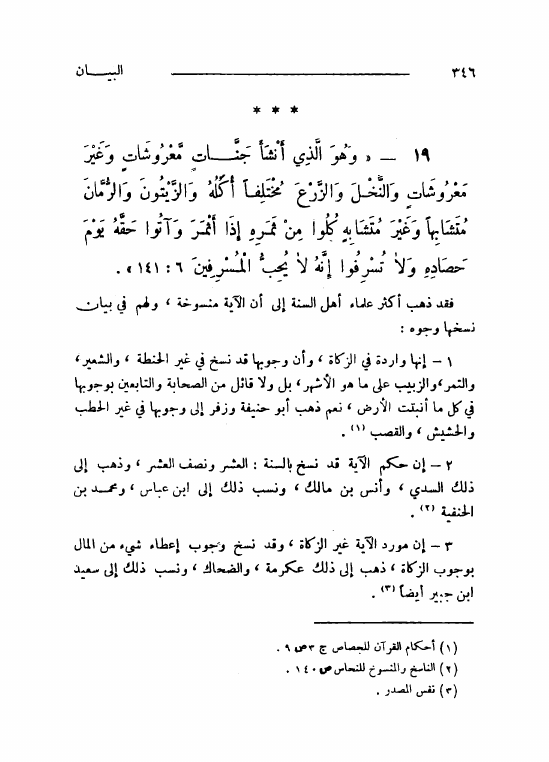 ٣٤٦ البيـــان
* * *
١٩ — « وَهُوَ الَّذِي أَنْشَأَ جَنَّــاتٍ مَّعْرُوشَاتٍ وَغَيْرَ
مَعْرُوشَاتٍ وَالنَّخْـلَ وَالزَّرْعَ مُخْتَلِفـاً أُكُلُهُ وَالزَّيْتُونَ وَالرُّمَّانَ
مُتَشَابِهاً وَغَيْرَ مُتَشَابِهٍ كُلُوا مِنْ ثَمَرِهِ إِذَا أَثْمَرَ وَآتُوا حَقَّهُ يَوْمَ
حَصَادِهِ وَلَا تُسْرِفُوا إِنَّهُ لَا يُحِبُّ الْمُسْرِفِينَ ٦ : ١٤١ » .
فقد ذهب أكثر علماء أهل السنة إلى أن الآية منسوخة ، ولهم في بيان
نسخها وجوه :
١ – إنها واردة في الزكاة ، وأن وجوبها قد نسخ في غير الحنطة ، والشعير،
والتمر،والزبيب على ما هو الأشهر، بل ولا قائل من الصحابة والتابعين بوجوبها
في كل ما أنبتت الأرض ، نعم ذهب أبو حنيفة وزفر إلى وجوبها في غير الحطب
والحشيش ، والقصب (١) .
٢ – إن حكم الآية قد نسخ بالسنة : العشر ونصف العشر ، وذهب إلى
ذلك السدي ، وأنس بن مالك ، ونسب ذلك إلى ابن عباس ، ومحمـد بن
الحنفية (٢) .
٣ – إن مورد الآية غير الزكاة ، وقد نسخ وجوب إعطاء شيء من المال
بوجوب الزكاة ، ذهب إلى ذلك عكرمة ، والضحاك ، ونسب ذلك إلى سعيد
ابن جبير أيضاً (٣) .
(١) أحكام القرآن للجصاص ج ٣ ص ٩ .
(٢) الناسخ والمنسوخ للنحاس ص ١٤٠ .
(٣) نفس المصدر .